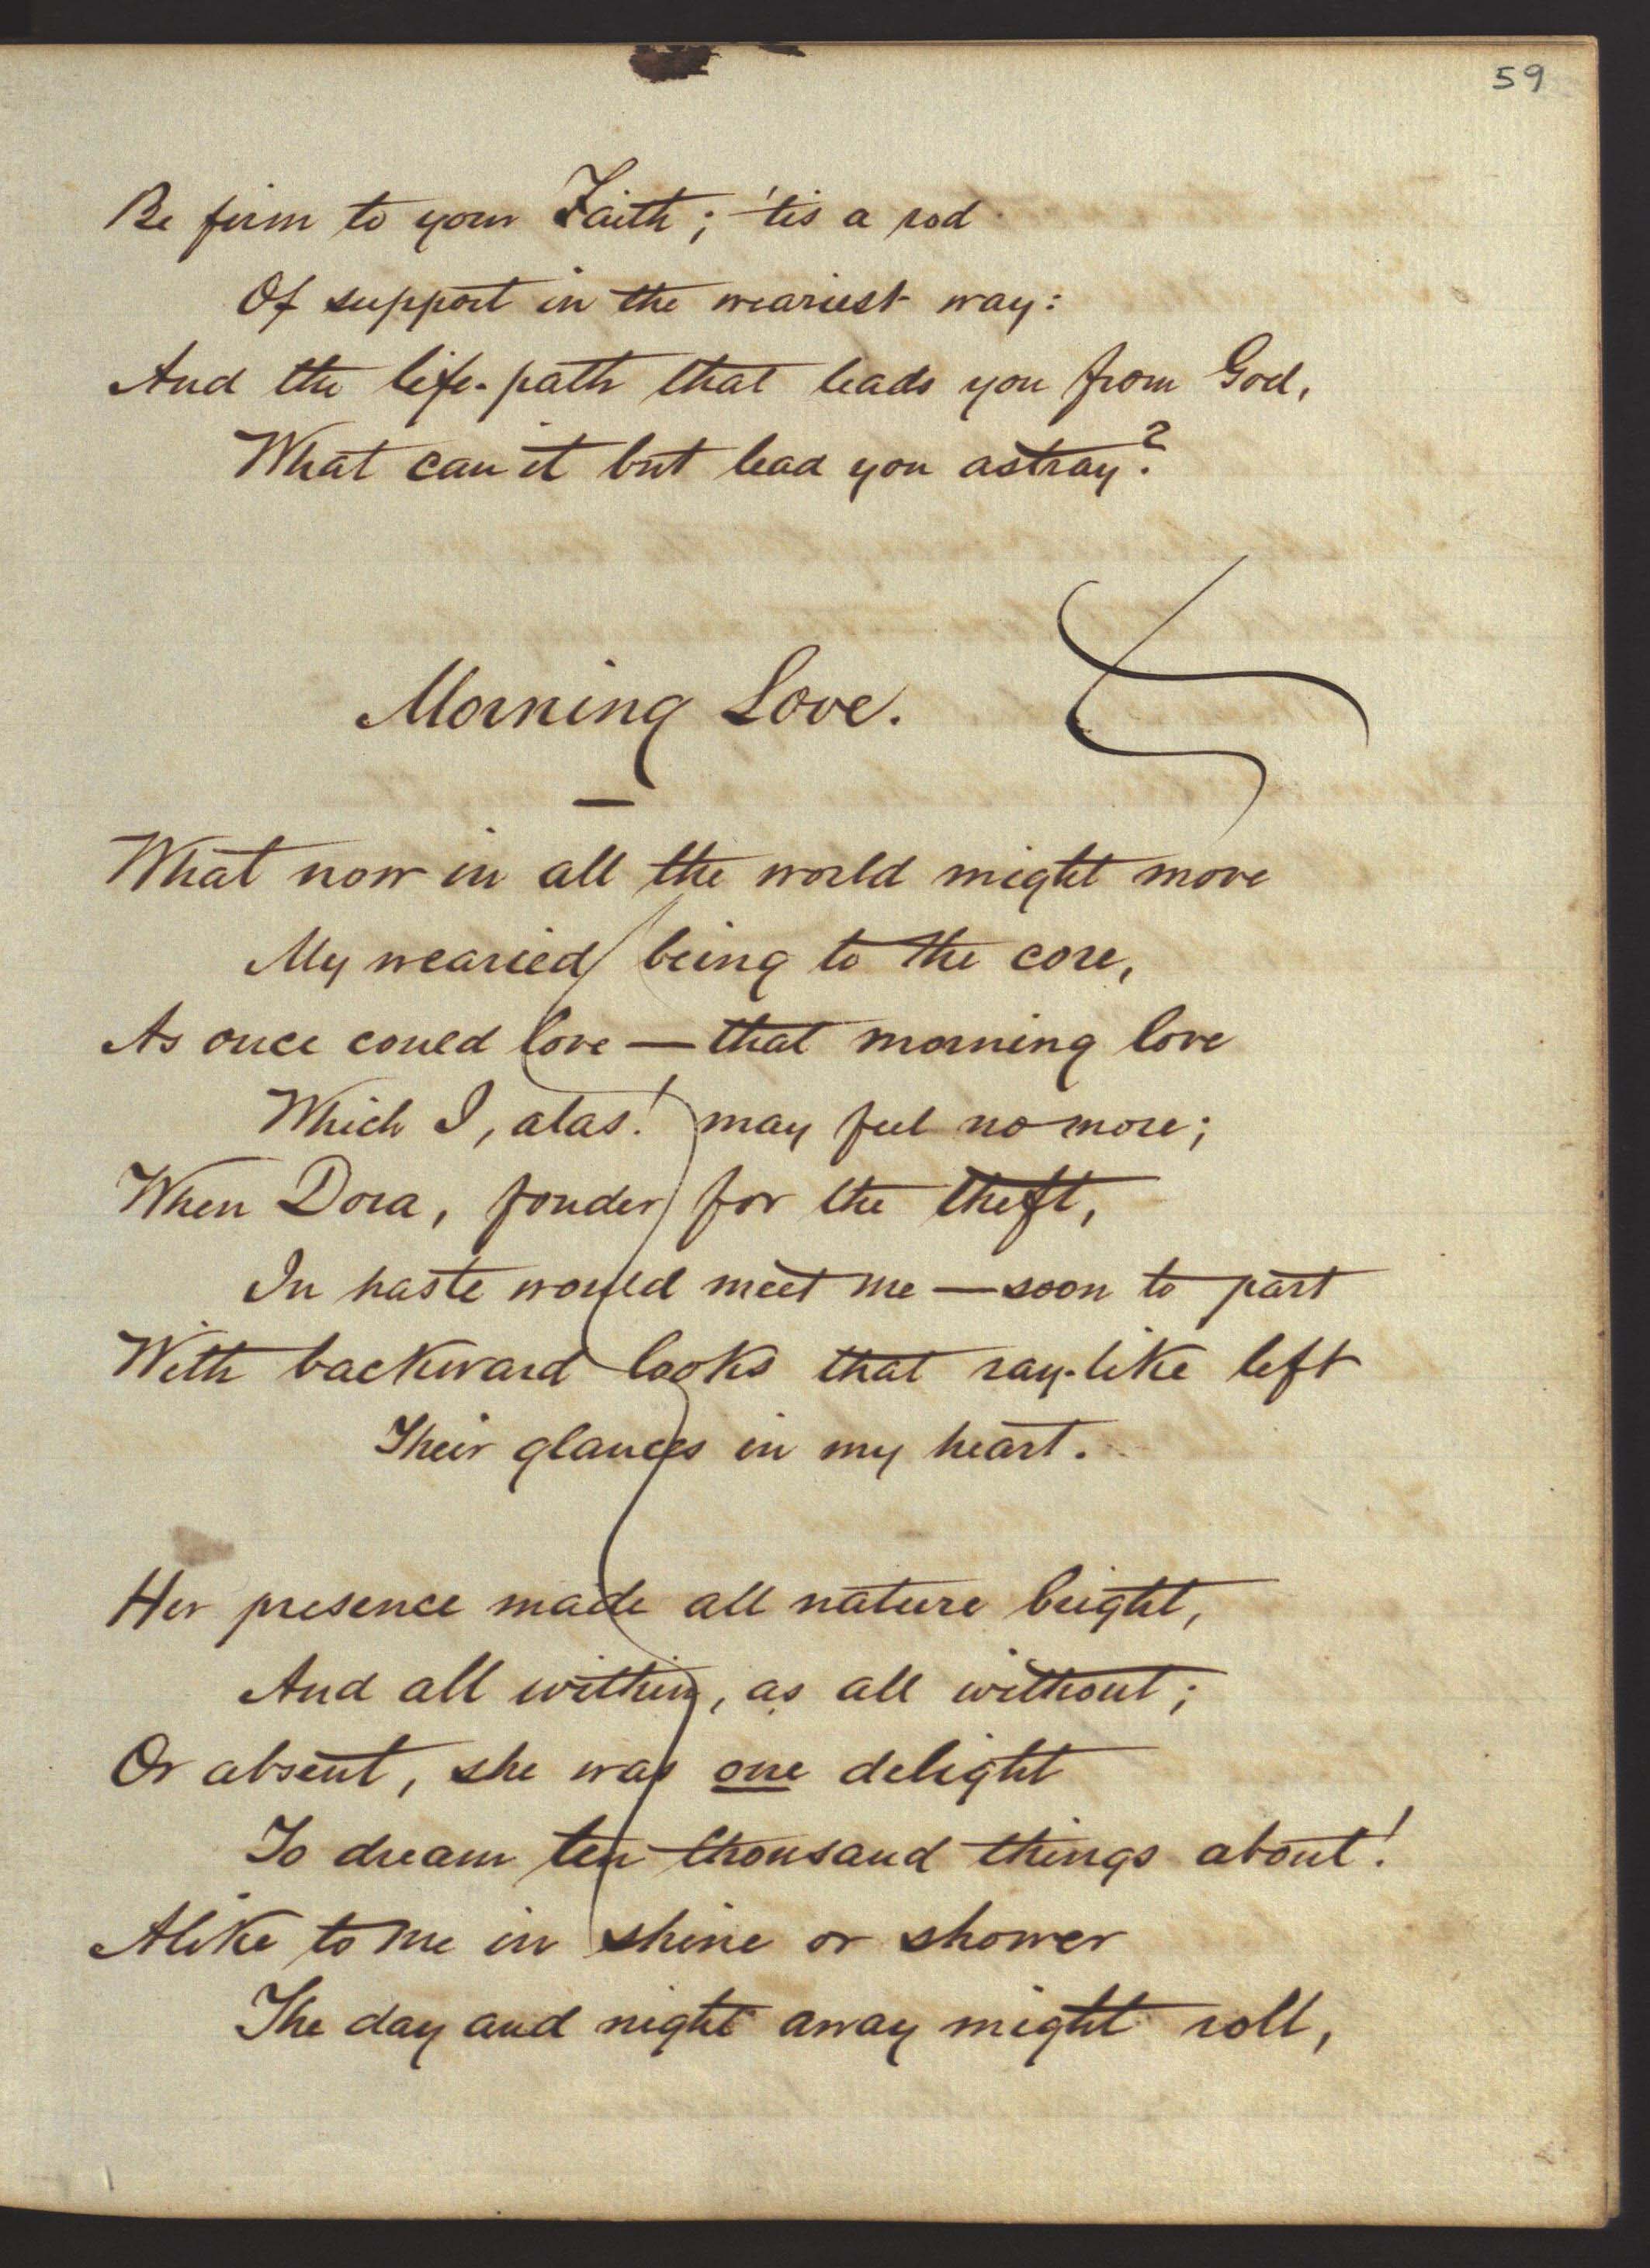 59
Be firm to your Faith; 'tis a rod
Of support in the weariest way:
And the life-path that leads you from God,
What can it but lead you astray?
Morning Love.
What now in all the world might move
My wearied being to the core,
As once could love — that morning love
Which I, alas! may feel no more;
When Dora, fonder for the theft,
In haste would meet me — soon to part
With backward looks that ray-like left
Their glances in my heart.
Her presence made all nature bright,
And all within, as all without;
Or absent, she was one delight
To dream ten thousand things about!
Alike to me in shine or shower
The day and night away might roll,